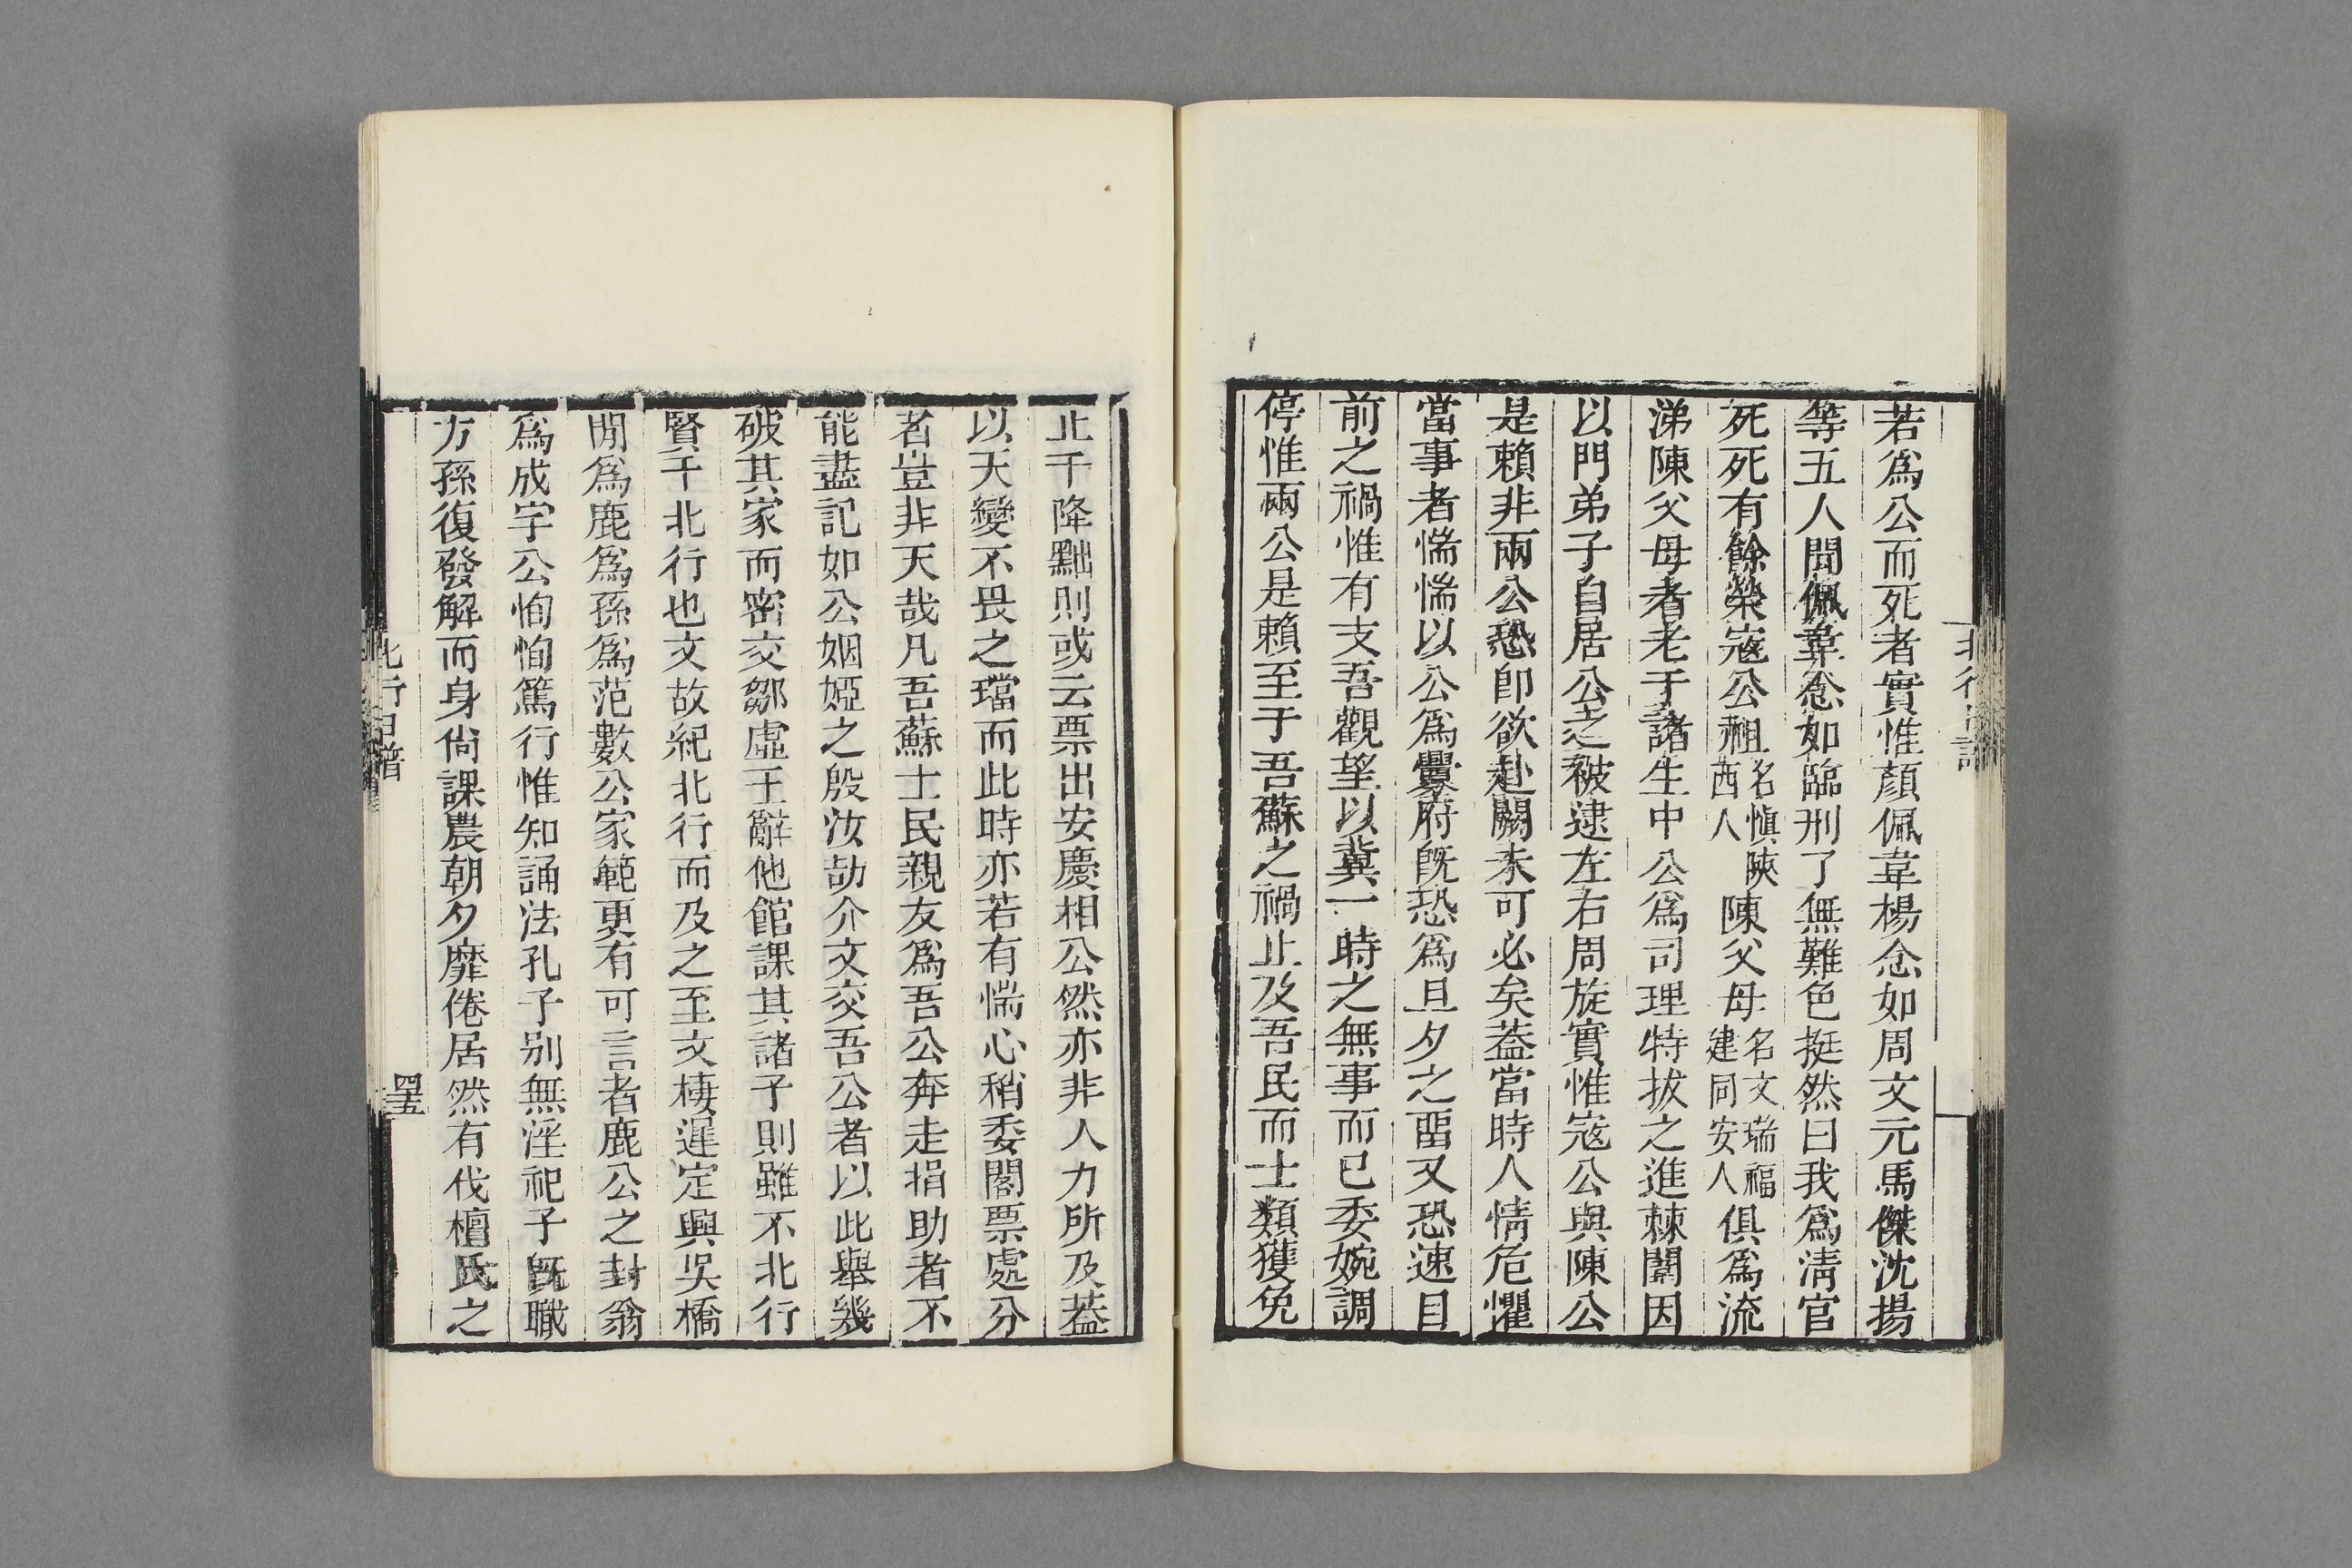 若爲公而死者實惟顏佩韋楊念如周文元馬傑沈揚
等五人聞佩韋念如臨刑了無難色挺然曰我爲淸官
死死有餘榮寇公祖名愼陝西人陳父母名文瑞福建同安人俱爲流
涕陳父母者老于諸生中公爲司理特拔之進棘闈因
以門弟子自居公之被逮左右周旋實惟寇公與陳公
是賴非兩公恐卽欲赴闕未可必矣葢當時人情危懼
當事者惴惴以公爲釁府旣恐爲旦夕之畱又恐速目
前之禍惟有支吾觀望以冀一時之無事而已委婉調
停惟兩公是賴至于吾蘇之禍止及吾民而士類獲免
止于降黜則或云票出安慶相公然亦非人力所及葢
以天變不畏之璫而此時亦若有惴心稍委閣票處分
者豈非天哉凡吾蘇士民親友爲吾公奔走捐助者不
能盡記如公姻婭之殷汝劼介文交吾公者以此舉幾
破其家而密交鄒虛王辭他館課其諸子則雖不北行
賢于北行也文故紀北行而及之至文棲遲定興吳橋
閒爲鹿爲孫爲范數公家範更有可言者鹿公之封翁
爲成宇公恂恂篤行惟知誦法孔子别無淫祀子旣職
方孫復發解而身尙課農朝夕靡倦居然有伐檀氏之
北行日譜
四五